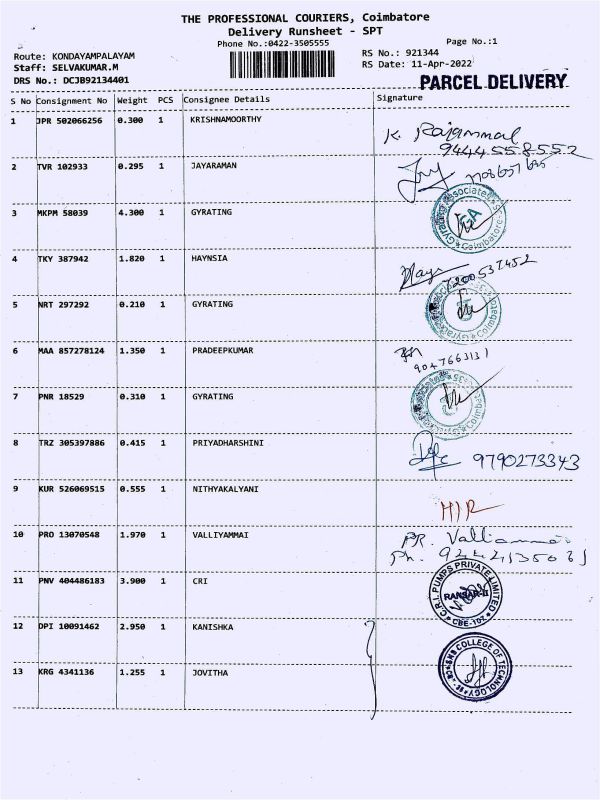 THE PROFESSIONAL COURIERS, Coimbatore
Delivery Runsheet - SPT
Phone No.:0422-3505555
Page No.:1
Route: KONDAYAMPALAYAM
RS No.: 921344
Staff: SELVAKUMAR.M
RS Date: 11-Apr-2022
DRS No.: DCJB92134401
PARCEL DELIVERY
S No Consignment No Weight PCS Consignee Details Signature
1 JPR 502066256 0.300 1 KRISHNAMOORTHY
K. Rajammal
9444558552
2 TVR 102933 0.295 1 JAYARAMAN
3 MKPM 58039 4.300 1 GYRATING
Gyrating Associates Coimbatore
4 TKY 387942 1.820 1 HAYNSIA
7200537452
5 NRT 297292 0.210 1 GYRATING
Coimbatore
6 MAA 857278124 1.350 1 PRADEEPKUMAR
9047663131
7 PNR 18529 0.310 1 GYRATING
Coimbatore
8 TRZ 305397886 0.415 1 PRIYADHARSHINI
9790273343
9 KUR 526069515 0.555 1 NITHYAKALYANI
10 PRO 13070548 1.970 1 VALLIYAMMAI
PR. Valliammai
Ph.
11 PNV 404486183 3.900 1 CRI
C.R.I. PUMPS PRIVATE LIMITED
CBE-102
12 DPI 10091462 2.950 1 KANISHKA
SNS COLLEGE OF TECHNOLOGY
13 KRG 4341136 1.255 1 JOVITHA